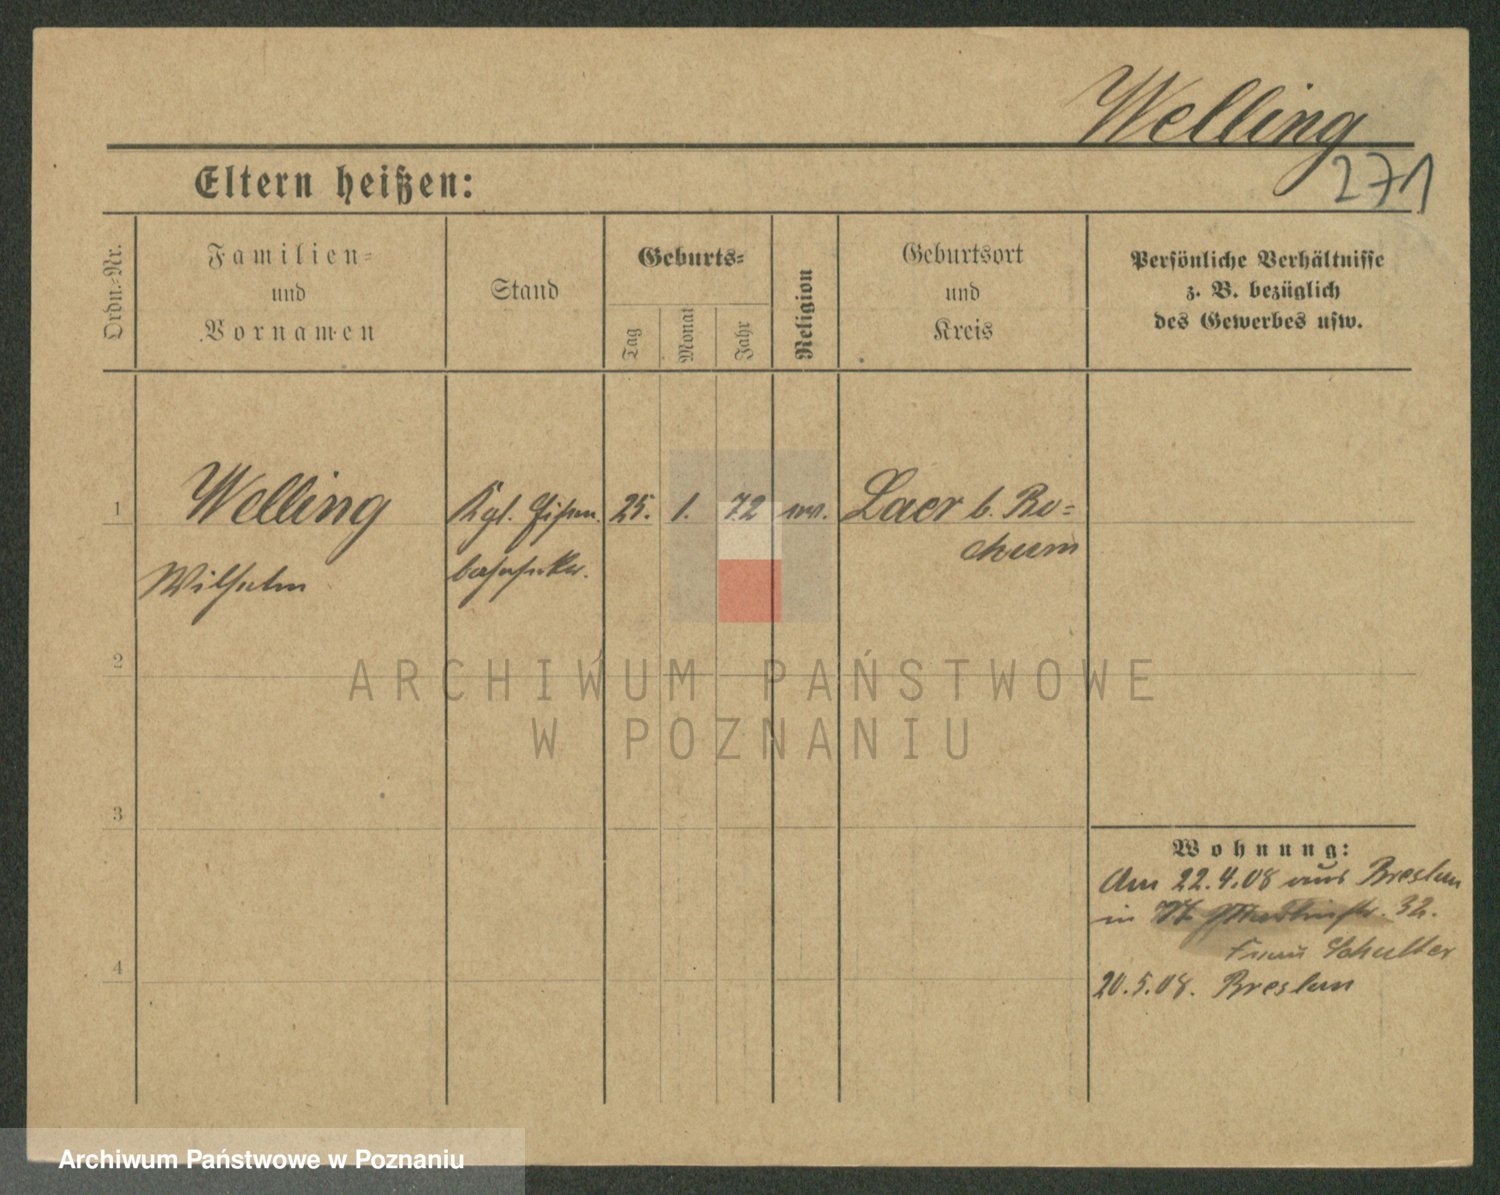 Welling
271
Eltern heißen:
Ordn.-Nr.
Familien-
und
Vornamen
Stand
Geburts-
Tag
Monat
Jahr
Religion
Geburtsort
und
Kreis
Persönliche Verhältnisse
z. B. bezüglich
des Gewerbes usw.
1
Welling
Wilhelm
Kgl. Eisen.
25. 1. 72
Laer b. Bo=
chum
2
ARCHIWUM PAŃSTWOWE
W POZNANIU
3
Wohnung:
Am 22.4.08 aus Breslau
in St Martinstr. 32.
Frau
4
20.5.08. Breslau
Archiwum Państwowe w Poznaniu